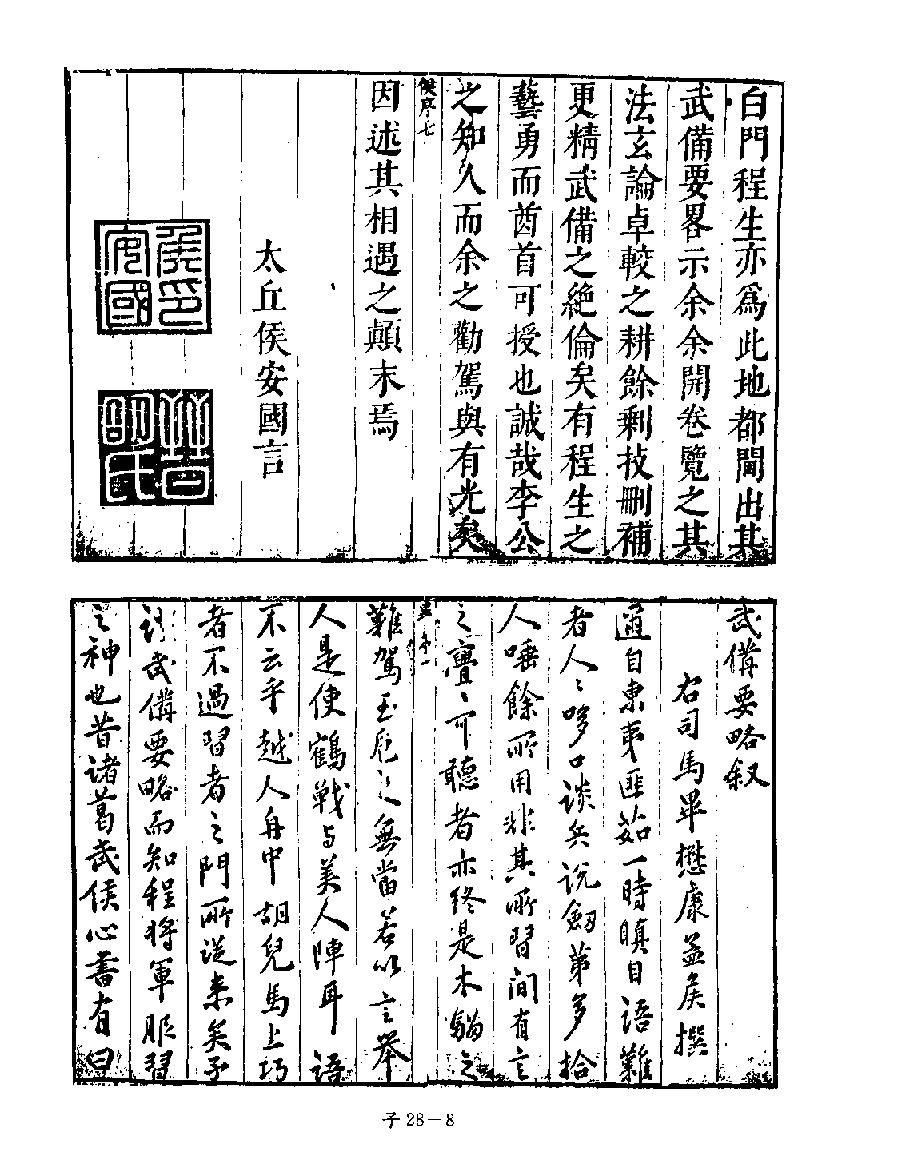 白門程生亦爲此地都閫出其
武備要畧示余余開卷覽之其
法玄論卓較之耕餘剩技刪補
更精武備之絕倫矣有程生之
藝勇而酋首可授也誠哉李公
之知人而余之勸駕與有光矣
侯序七
因述其相遇之顛末焉
太丘侯安國言
侯印安國
邵氏
武備要略叙
右司馬畢懋康孟侯撰
適自東夷匪茹一時瞋目語難
者人〻哆口談兵說劒第多拾
人唾餘所用非其所習間有言
之亹〻可聽者亦終是木貓之
序一
難駕玉卮之無當若以言舉
人是使鶴戰与美人陣耳語
不云乎越人舟中胡兒馬上巧
者不過習者之門所從来矣予
讀武備要略而知程将軍服習
之神也昔諸葛武侯心書有曰
子28－8